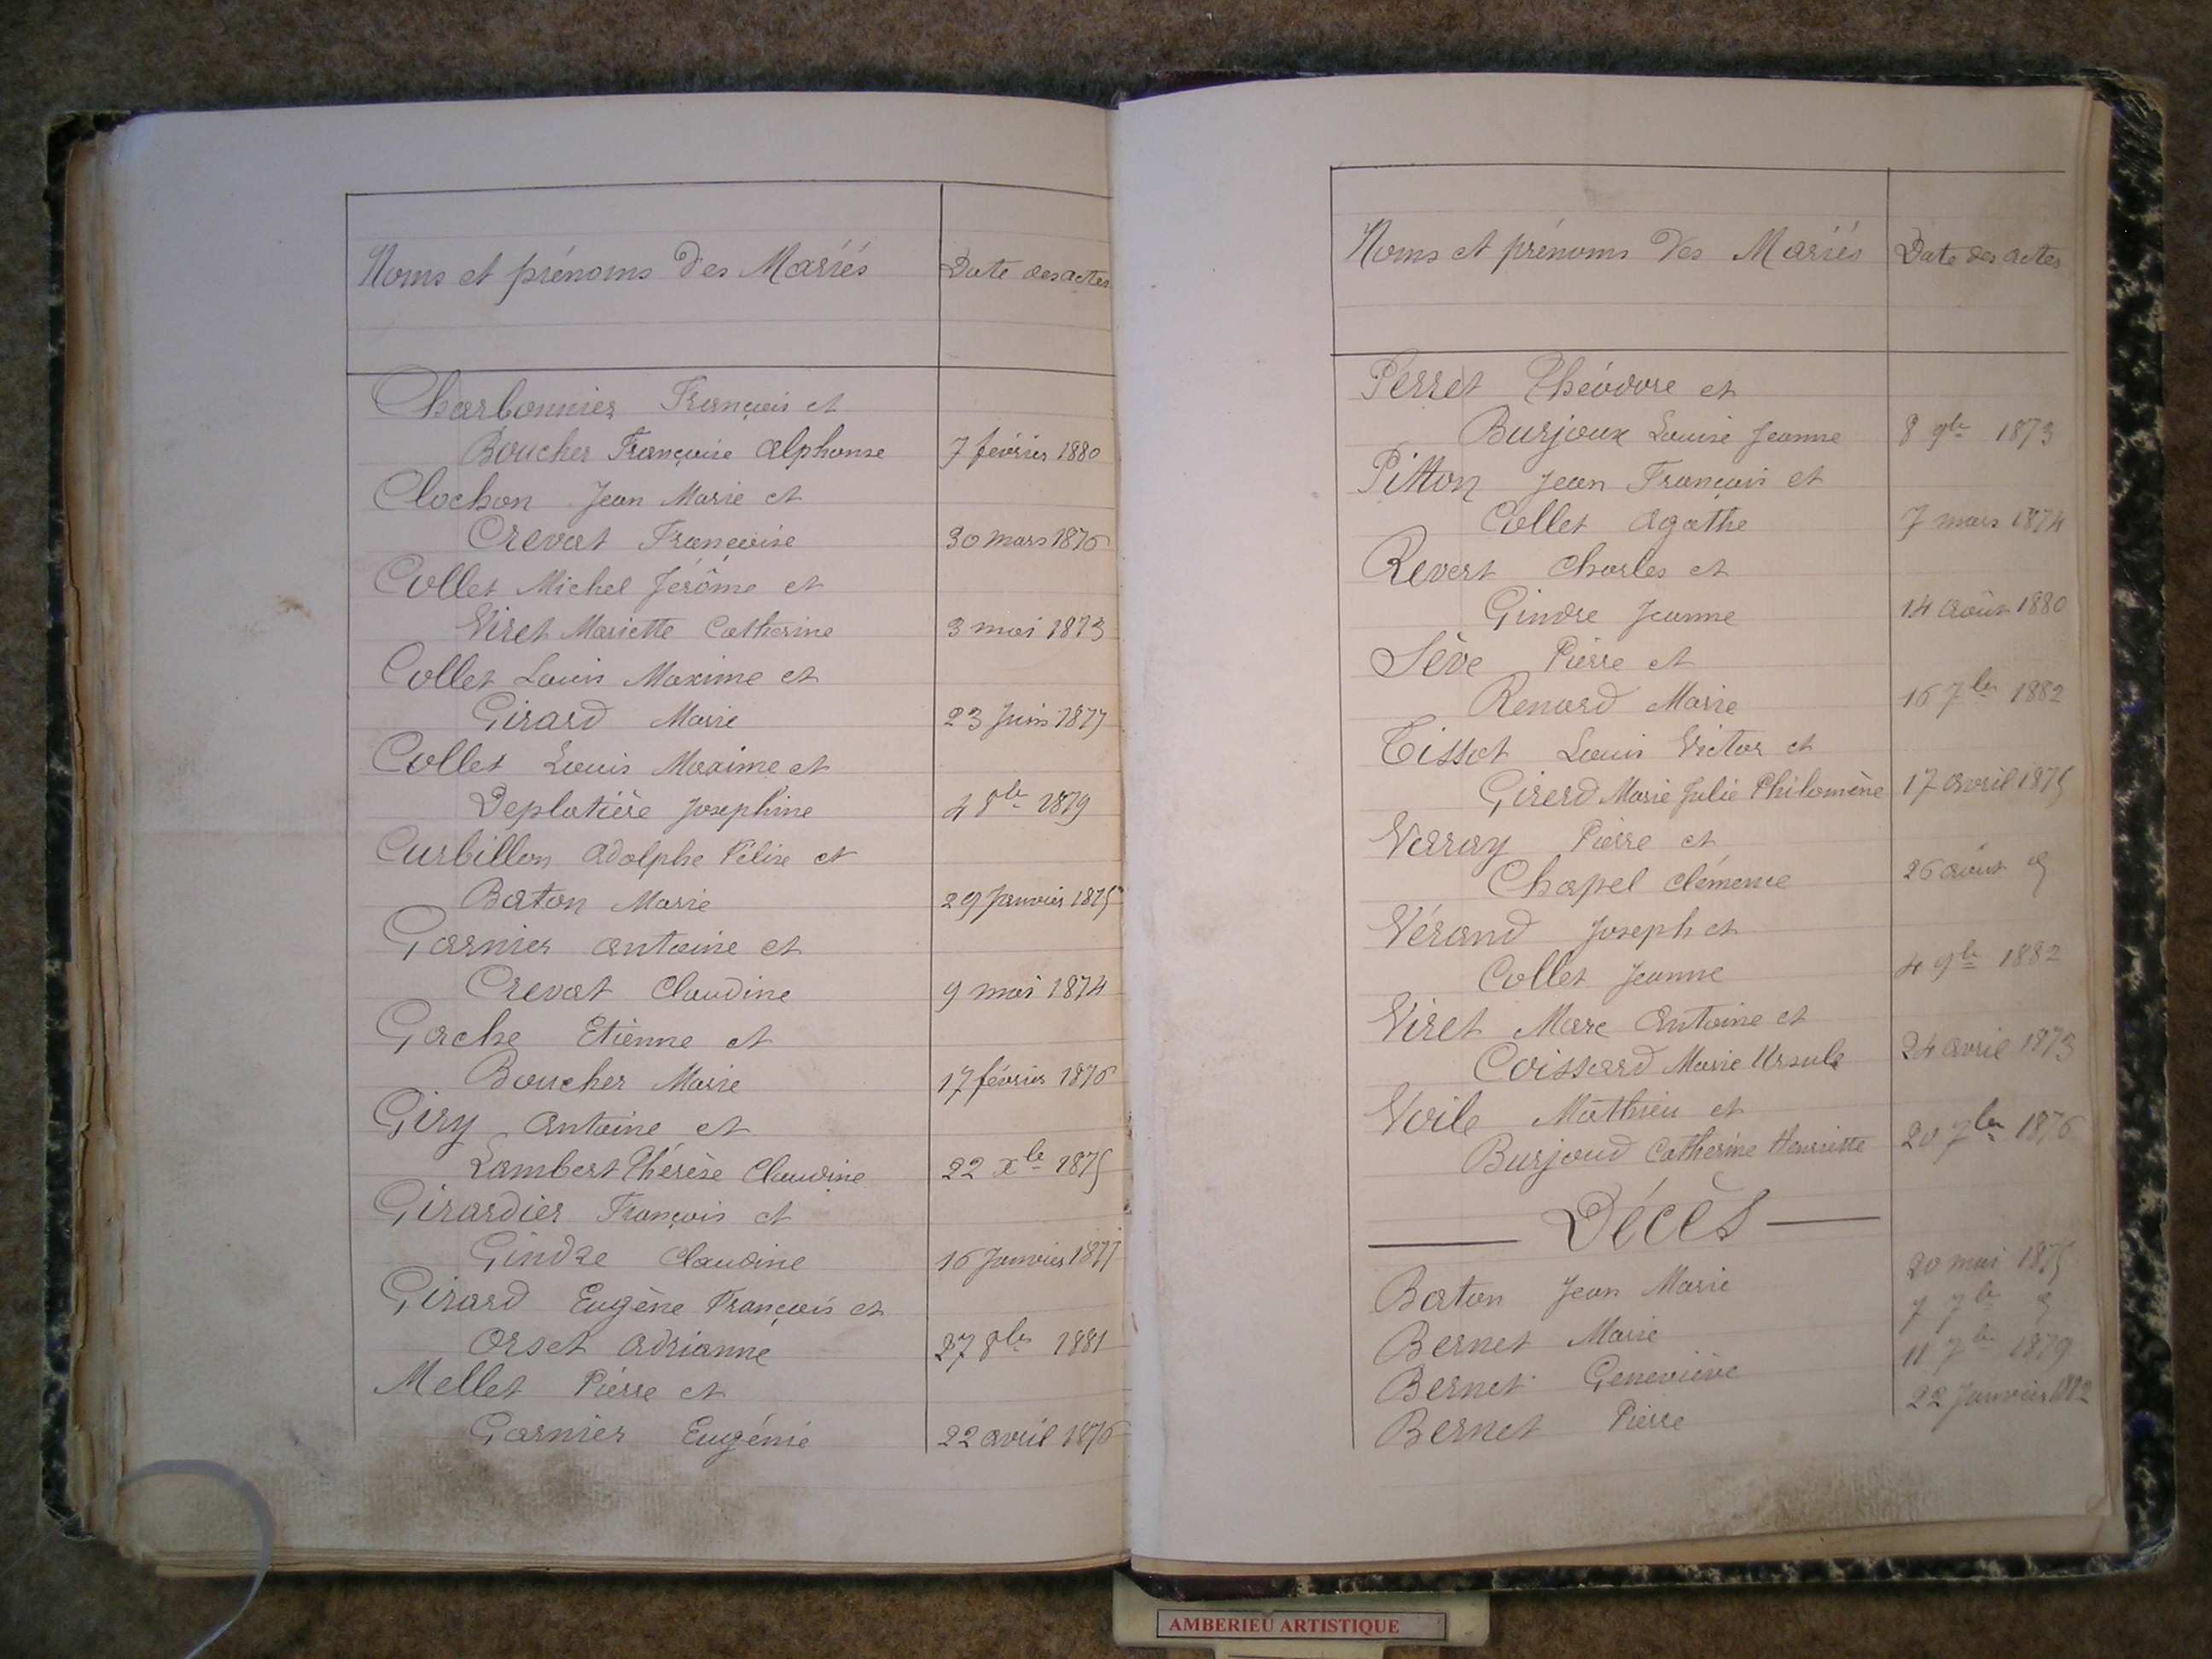 Noms et prénoms des Mariés Date des actes
Charbonnier François et
Boucher Françoise Alphonse 7 février 1880
Clochon Jean Marie et
Crevat Françoise 30 mars 1876
Collet Michel Jérôme et
Viret Mariette Catherine 3 mai 1873
Collet Louis Maxime et
Girard Marie 23 Juin 1877
Collet Louis Maxime et
Deplatière Joséphine 4 8bre 1879
Curbillon Adolphe Félix et
Baton Marie 29 Janvier 1875
Garnier Antoine et
Crevat Claudine 9 mai 1874
Gache Etienne et
Boucher Marie 17 février 1876
Giry Antoine et
Lambert Thérèse Claudine 22 Xbre 1875
Girardier François et
Gindre Claudine 16 Janvier 1877
Girard Eugène François et
Orset Adrianne 27 8bre 1881
Mellet Pierre et
Garnier Eugénie 22 avril 1876
Noms et prénoms des Mariés Date des actes
Perret Théodore et
Burjoux Louise Jeanne 8 9bre 1873
Pitton Jean François et
Collet Agathe 7 mars 1874
Revert Charles et
Gindre Jeanne 14 Août 1880
Sève Pierre et
Renard Marie 16 7bre 1882
Tissot Louis Victor et
Girerd Marie Julie Philomène 17 avril 1875
Varay Pierre et
Chapel Clémence 26 août
Vérand Joseph et
Collet Jeanne 4 9bre 1882
Viret Marc Antoine et
Coissard Marie Ursule 24 avril 1873
Voile Mathieu et
Burjoud Catherine Henriette 20 7bre 1876
Décès
Baton Jean Marie 20 mai 1875
Bernet Marie 7 7bre
Bernet Geneviève 11 7bre 1879
Bernet Pierre 22 Janvier 1882
AMBERIEU ARTISTIQUE